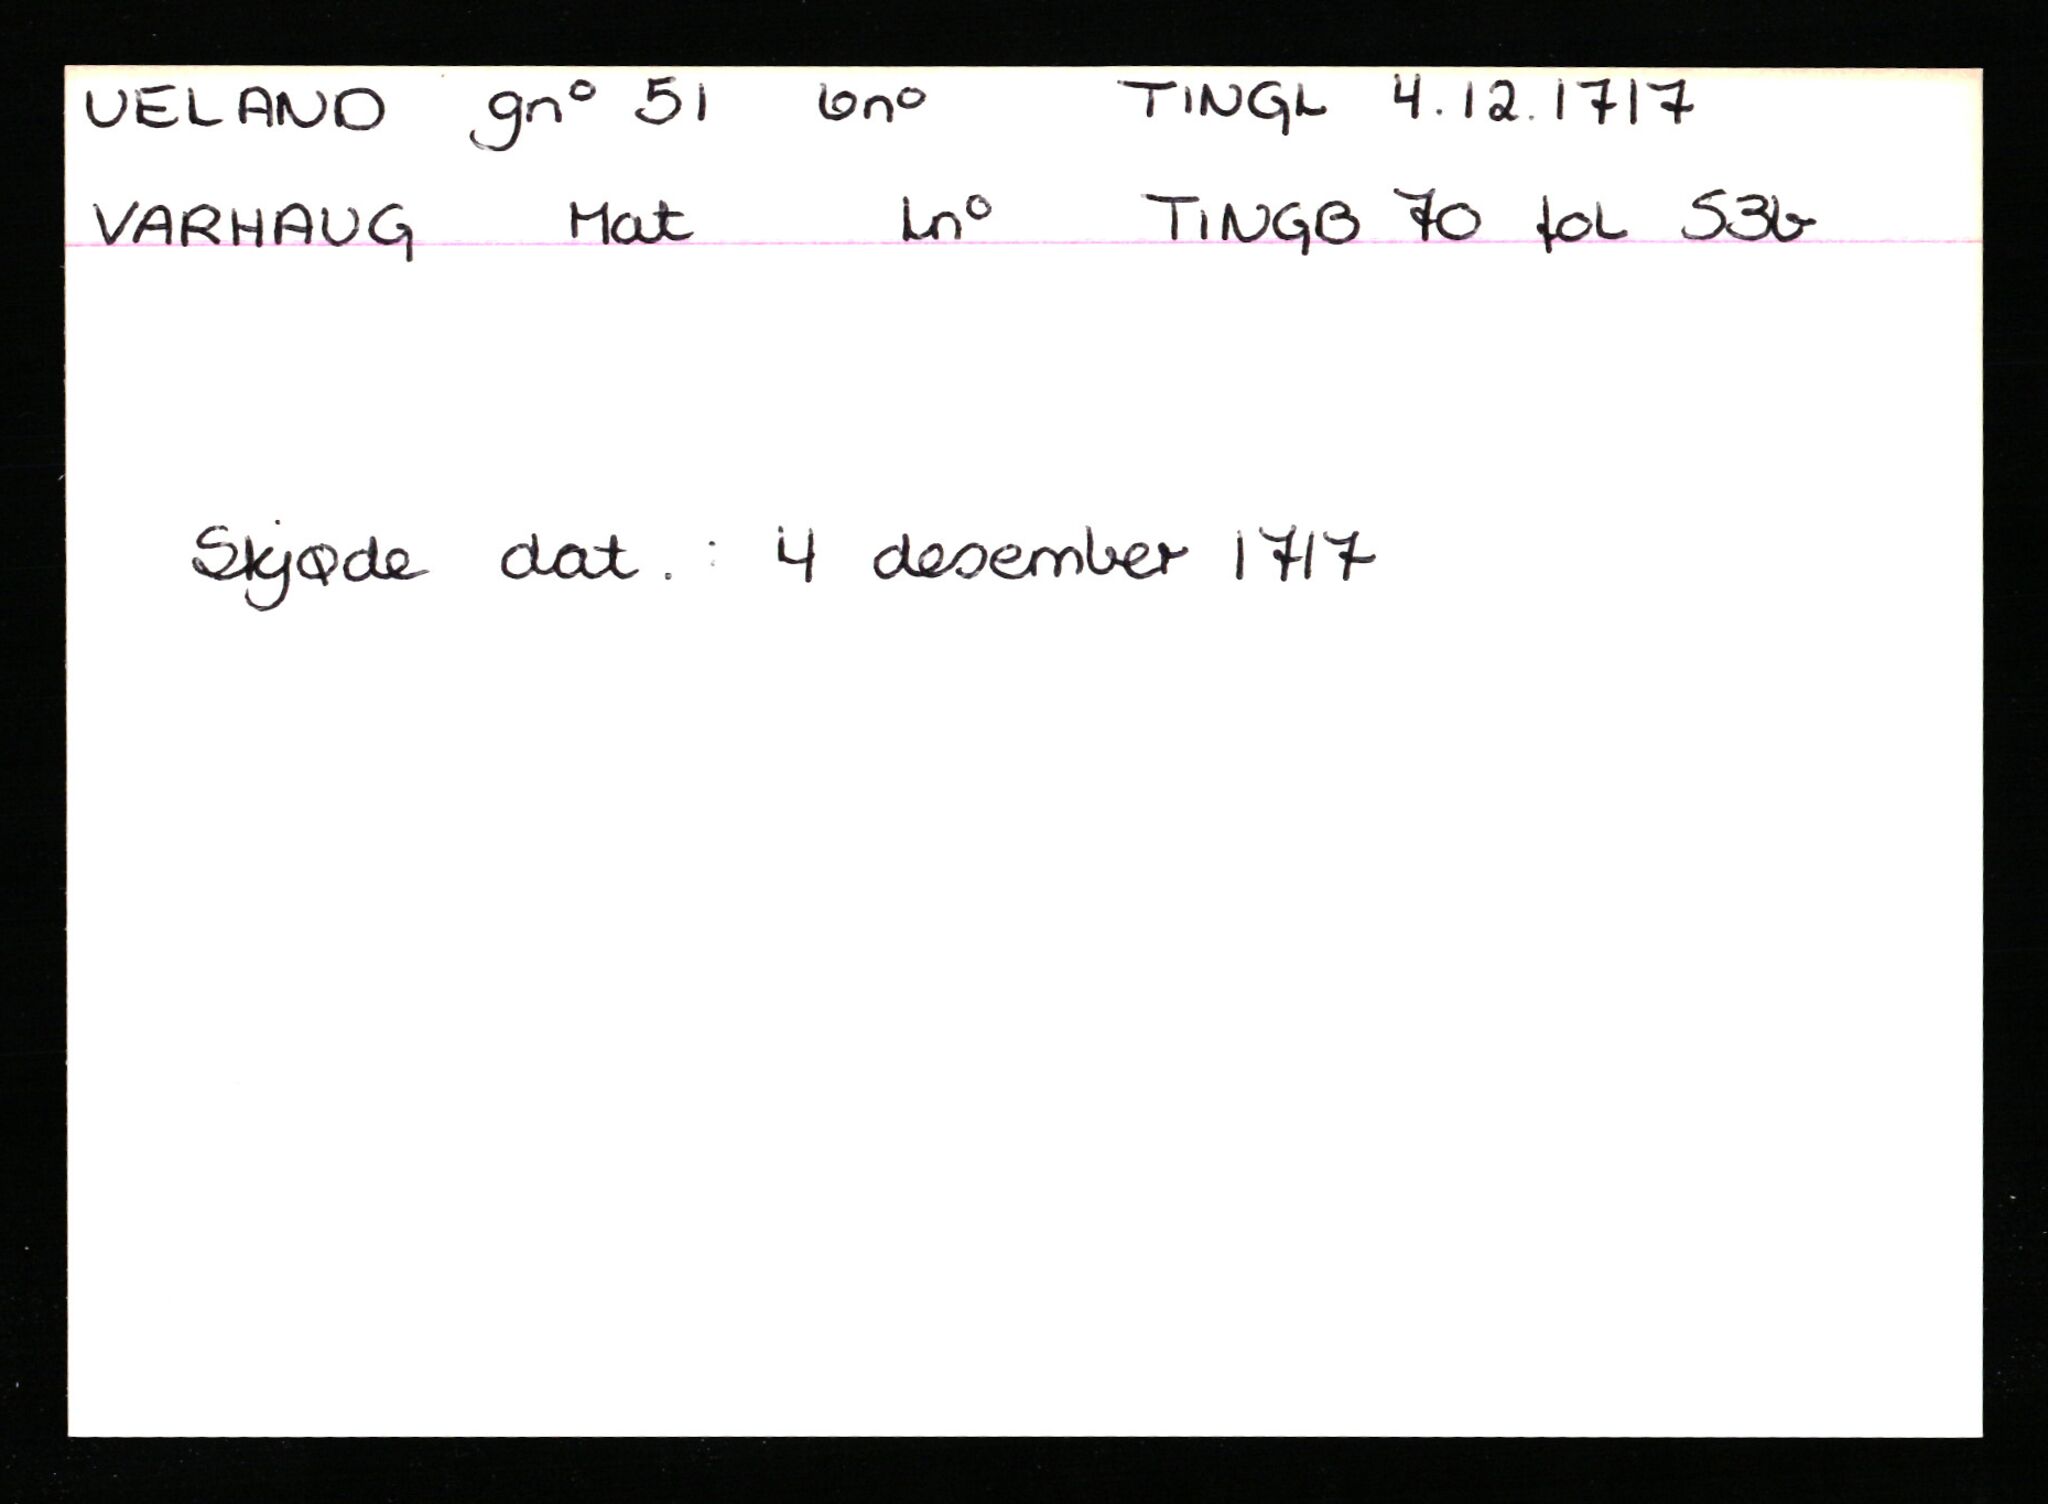 UELAND gnº 51 bnº TINGL 4.12.1717
VARHAUG Mat Lnº TINGB 70 fol 53b
Skjøde dat. : 4 desember 1717